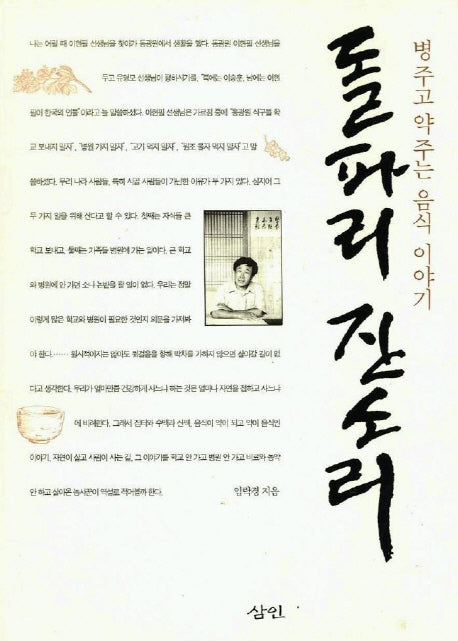 병 주고 약 주는 음식 이야기
돌파리 잔소리
나는 어릴 때 이현필 선생님을 찾아가 동광원에서 생활을 했다. 동광원 이현필 선생님을
두고 유영모 선생님이 말하시기를, "북에는 이승훈, 남에는 이현
필이 한국의 인물"이라고 늘 말씀하셨다. 이현필 선생님은 가르침 중에 "동광원 식구들 학
교 보내지 말자", "병원 가지 말자", "고기 먹지 말자", "원조 물자 먹지 말자"고 말
씀하셨다. 우리 나라 사람들, 특히 시골 사람들이 가난한 이유가 두 가지 있다. 심지어 그
두 가지 일을 위해 산다고 할 수 있다. 첫째는 자식들 큰
학교 보내고, 둘째는 가족들 병원에 가는 일이다. 큰 학교
와 병원에 안 가면 소나 논밭을 팔 일이 없다. 우리는 정말
이렇게 많은 학교와 병원이 필요한 것인지 의문을 가져봐
야 한다.…… 원시적이지는 않아도 뒷걸음을 향해 박차를 가하지 않으면 살아갈 길이 없
다고 생각한다. 우리가 얼마만큼 건강하게 사느냐 하는 것은 얼마나 자연을 접하고 사느냐
에 비례한다. 그래서 집터와 수맥과 산맥, 음식이 약이 되고 약이 음식인
이야기, 자연이 살고 사람이 사는 길, 그 이야기를 학교 안 가고 병원 안 가고 비료와 농약
안 하고 살아온 농사꾼이 역설로 적어볼까 한다.
임락경 지음
삼인